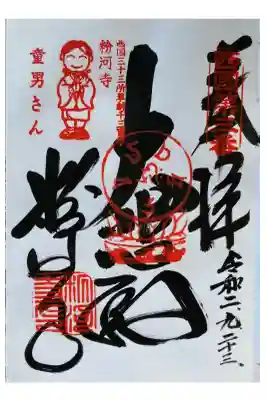 奉拝
西国第三番
令和二、九、二十三、
大悲殿
西国三十三所草創千三百年
粉河寺
童男さん
粉河寺